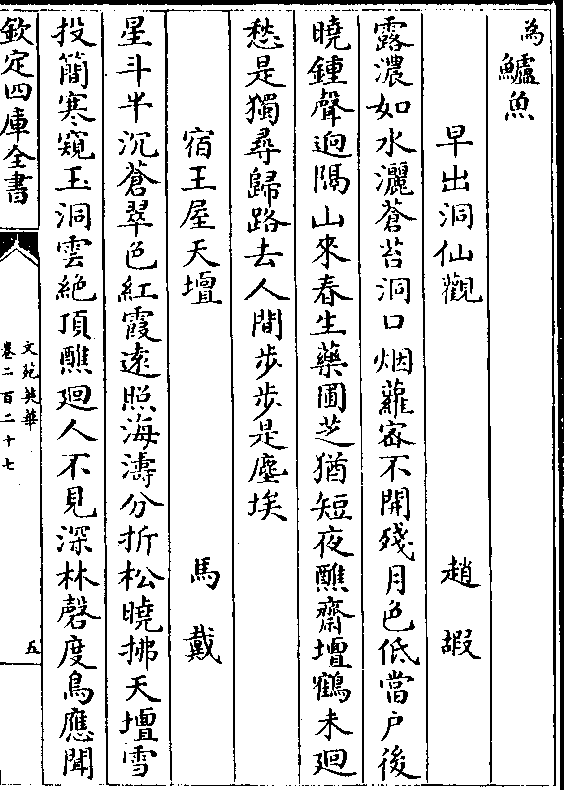 為鱸魚
早出洞仙觀 趙嘏
露濃如水灑蒼苔洞口烟蘿密不開殘月色低當户後
曉鍾聲逈隔山來春生藥圃芝猶短夜醮齋壇鶴未廻
愁是獨尋歸路去人間步步是塵埃
宿王屋天壇 馬戴
星斗半沉蒼翠色紅霞逺照海濤分折松曉拂天壇雪
投簡寒窺玉洞雲絶頂醮廻人不見深林磬度鳥應聞
欽定四庫全書
文苑英華
卷二百二十七
五